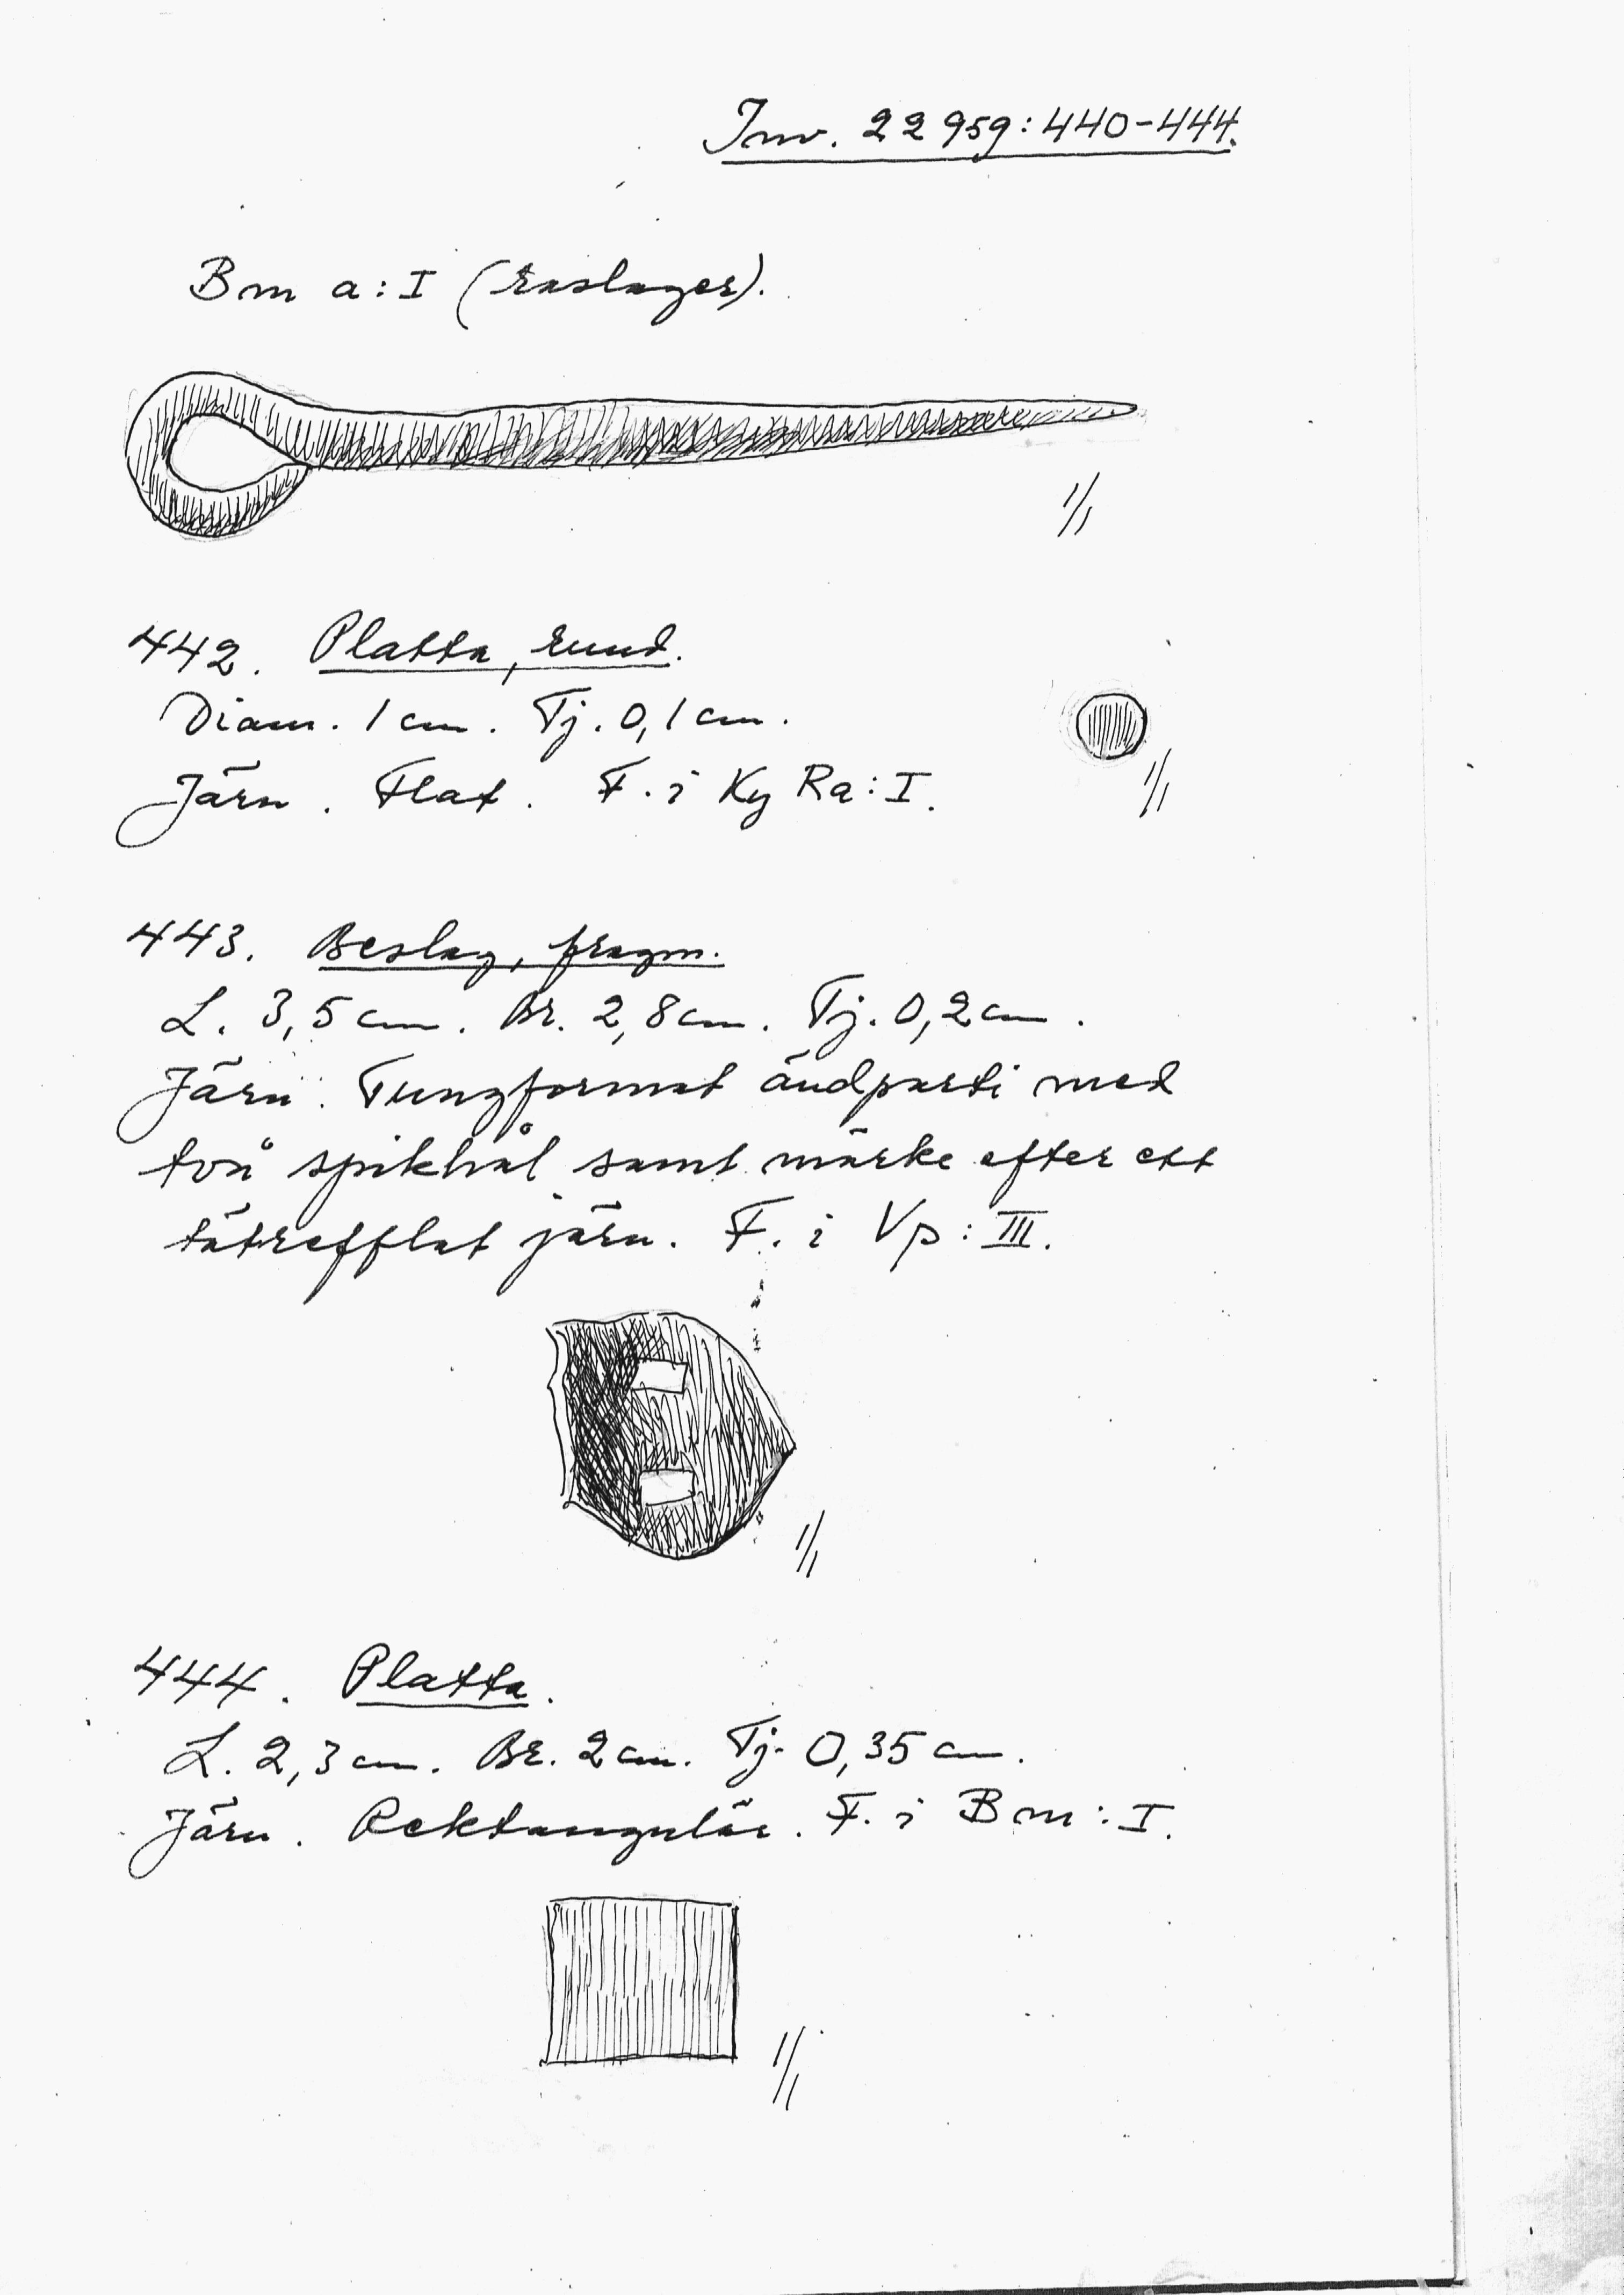 Inv. 22959:440-444.
Bm a:I (raslager).
1/1
442. Platta, rund.
Diam. 1 cm. Tj. 0,1 cm.
Järn. Flat. F. i Ky Ra:I.
1/1
443. Beslag, fragm.
L. 3,5 cm. Br. 2,8 cm. Tj. 0,2 cm.
Järn. Tungformat ändparti med
två spikhål samt märke efter ett
tätrefflat järn. F. i Vp:III.
1/1
444. Platta.
L. 2,3 cm. Br. 2 cm. Tj. 0,35 cm.
Järn. Rektangulär. F. i Bm:I.
1/1